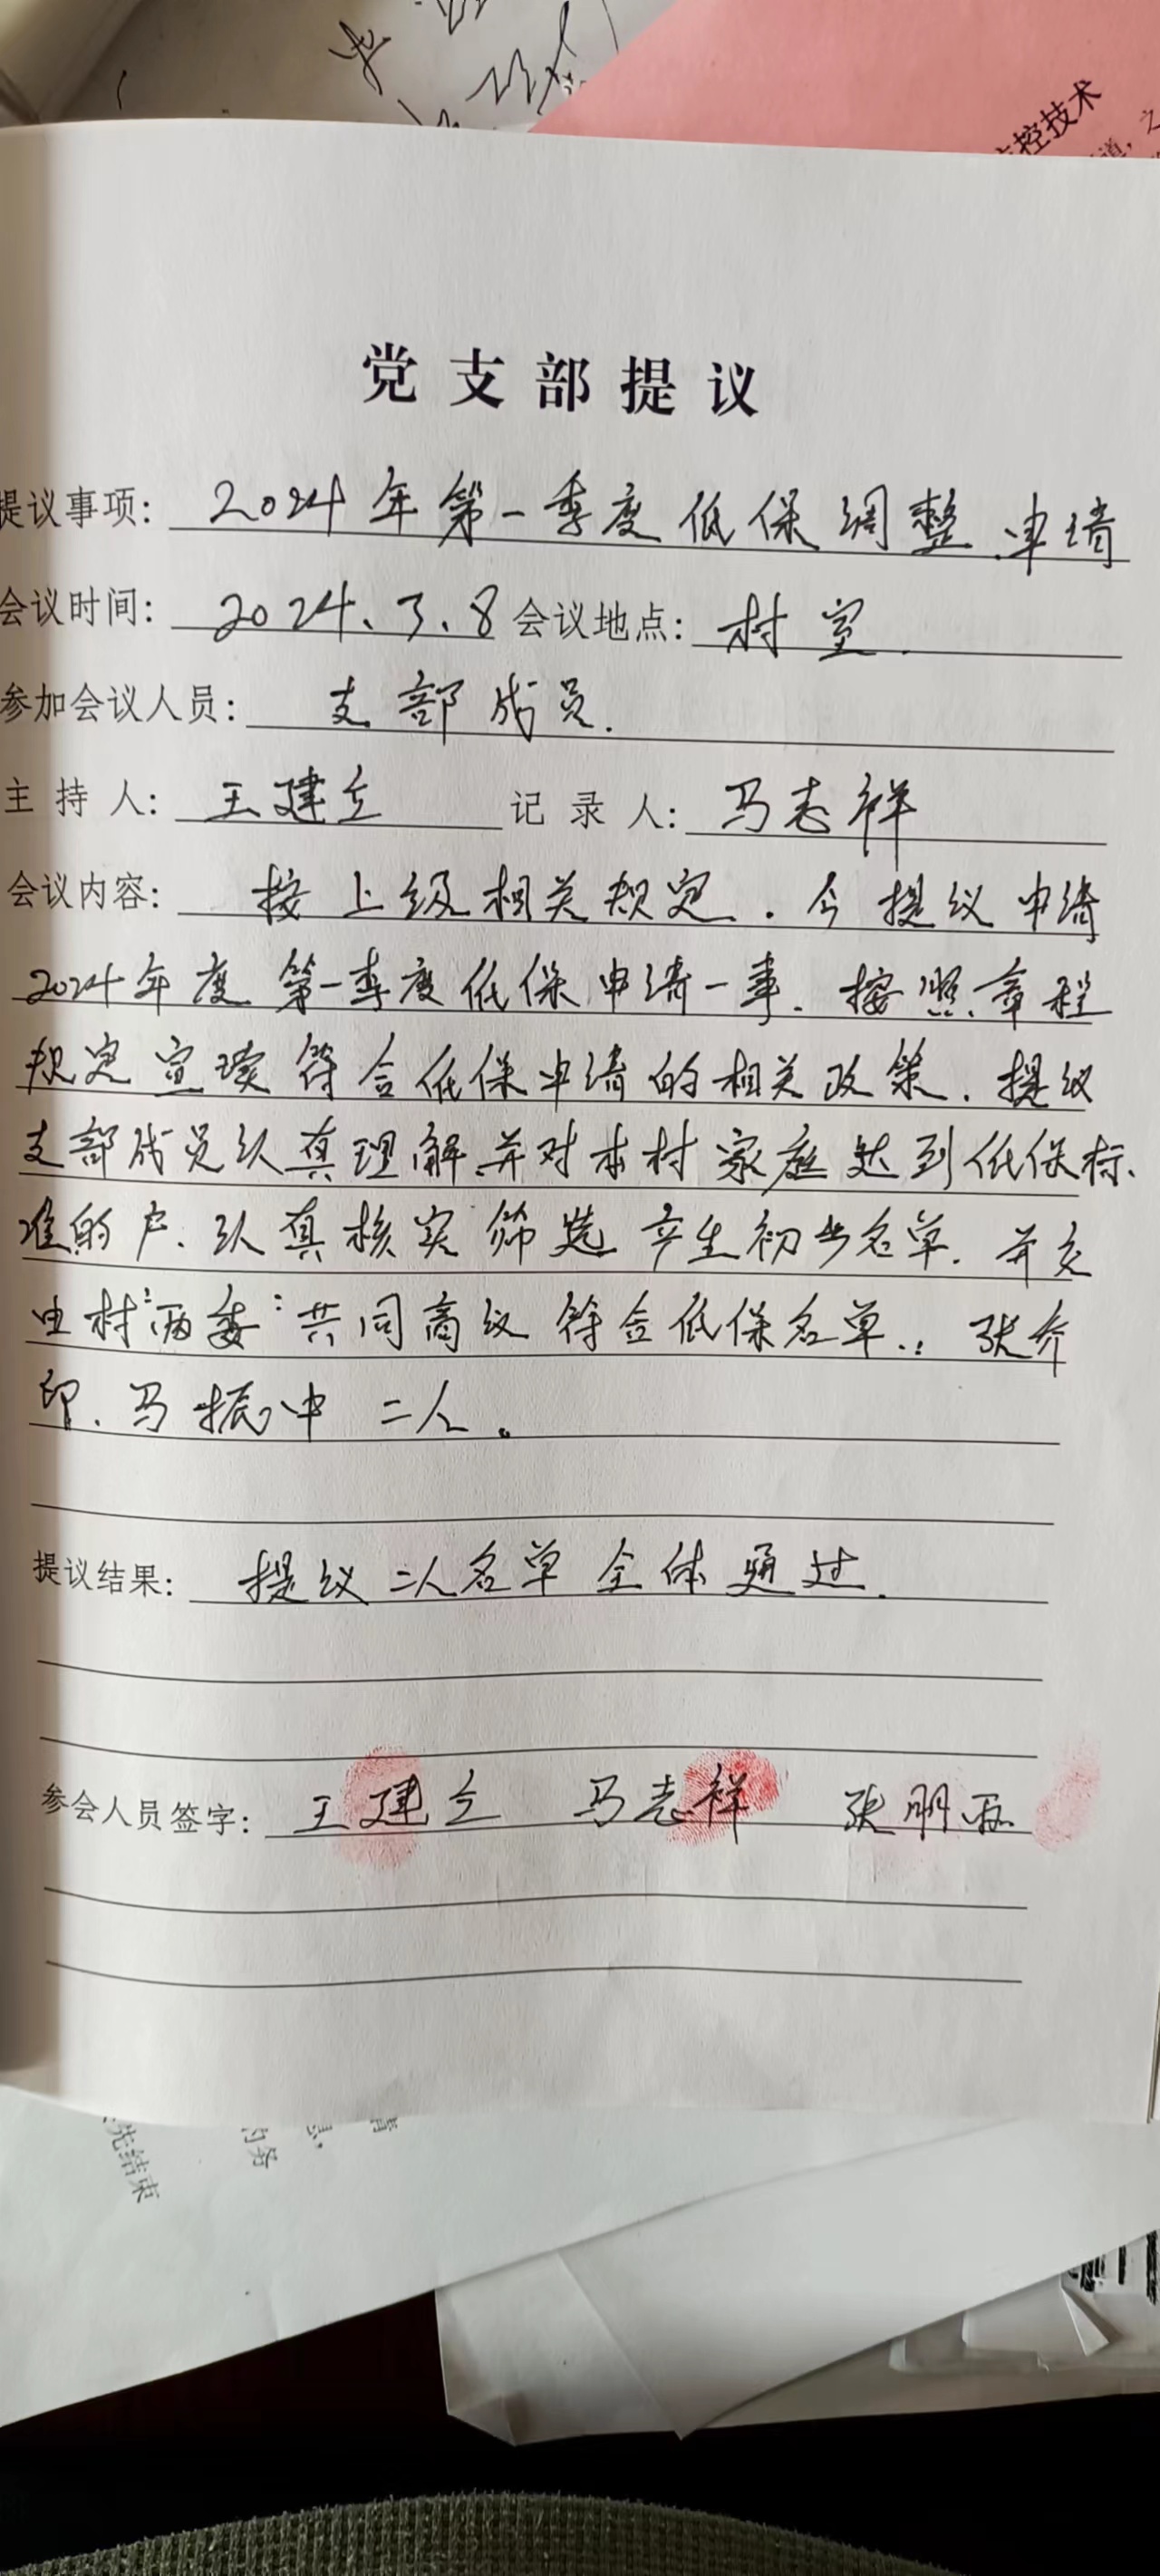 控技术
道，之
党支部提议
提议事项：2024年第一季度低保调整.申请
会议时间：2024.3.8 会议地点：村室.
参加会议人员：支部成员.
主持人：王建立 记录人：马志祥
会议内容：按上级相关规定.今提议申请
2024年度第一季度低保申请一事.按照章程
规定宣读符合低保申请的相关政策.提议
支部成员认真理解并对本村家庭达到低保标
准的户.认真核实筛选产生初步名单.并交
由村"两委"共同商议符合低保名单.:张介
印.马振中二人。
提议结果：提议二人名单全体通过.
参会人员签字：王建立 马志祥 张明
先结束
内务
息，